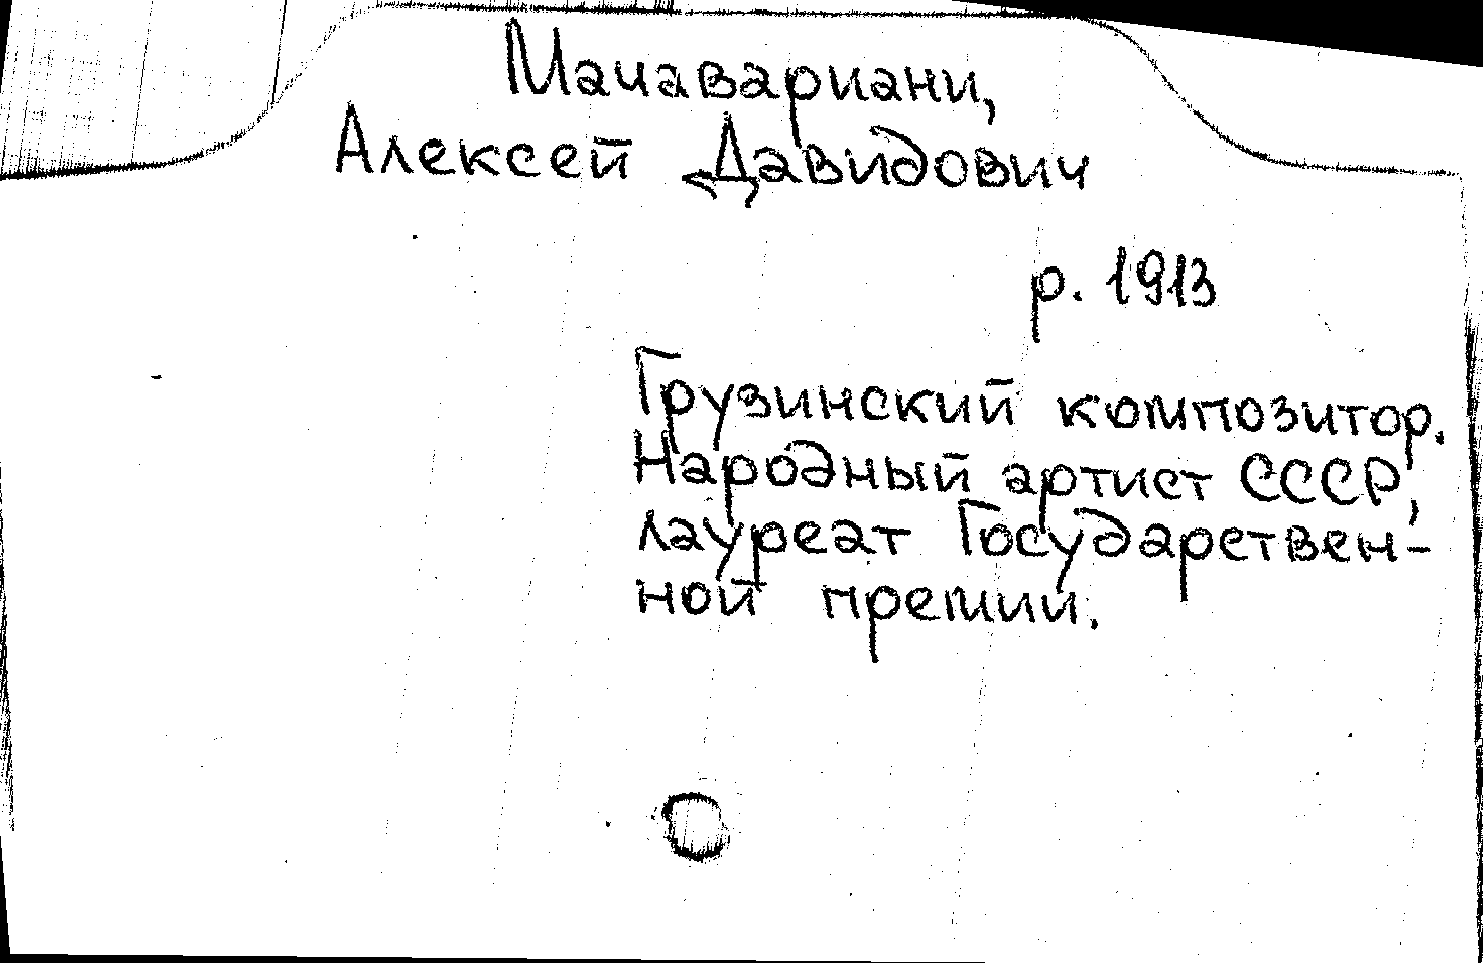 Мачавариани,
Алексей Давидович
р. 1913
Грузинский композитор.
Народный артист СССР,
лауреат Государствен-
ной премии.